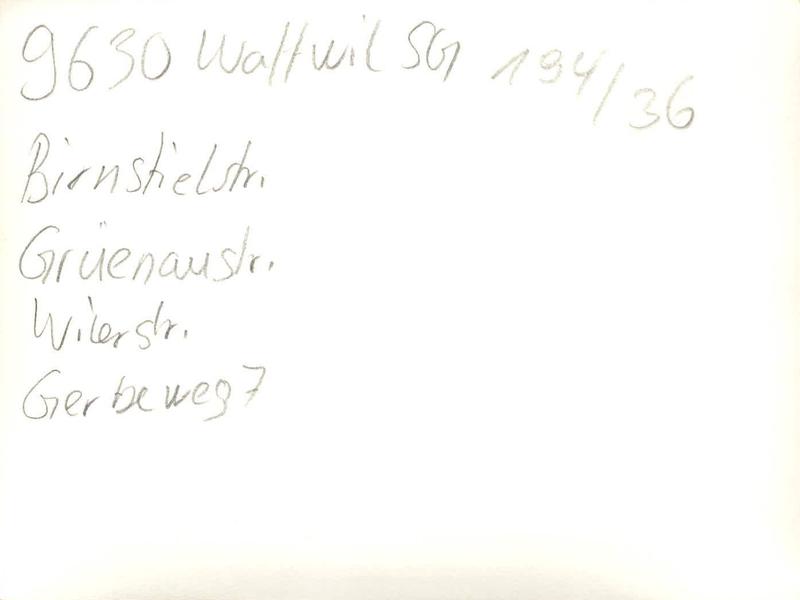 9630 Wattwil SG 194/36
Birnstielstr.
Grüenaustr.
Wilerstr.
Gerbeweg 7